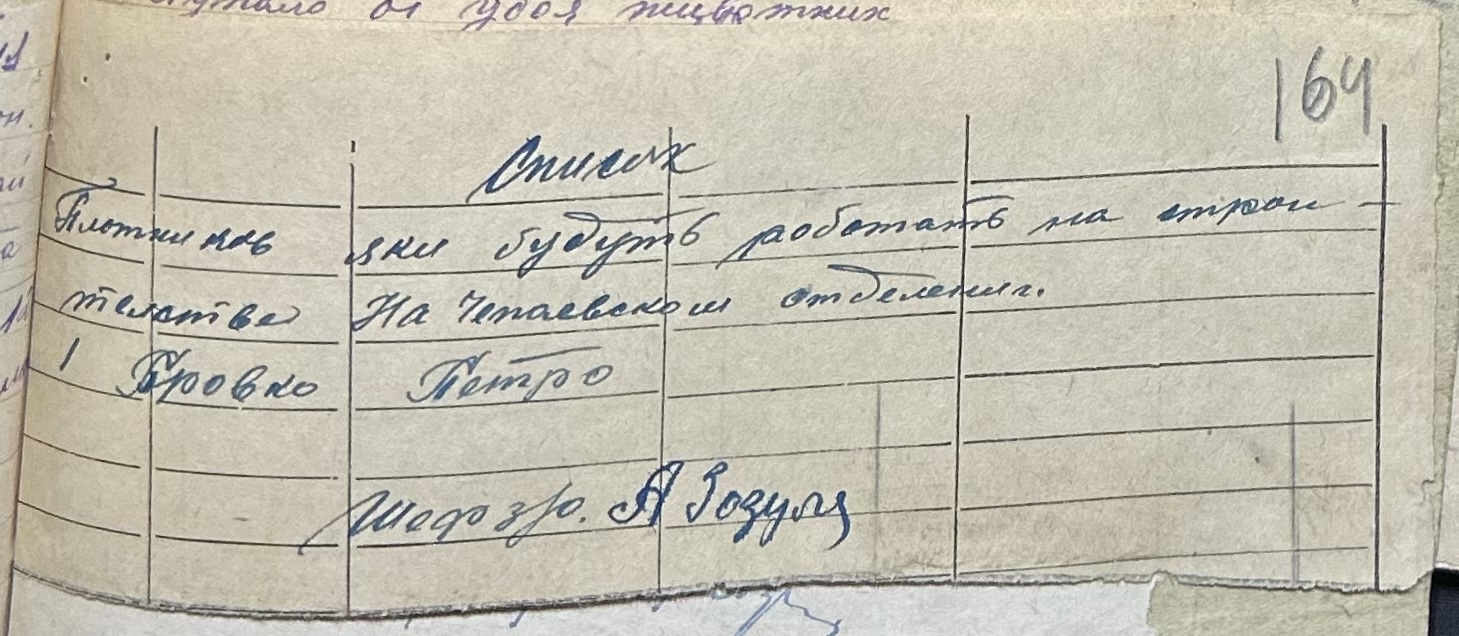 от удоя животних
164
Список
Плотников яки будуть работать на строи-
телстве На Чепаевском отделении.
1 Бровко Петро
Шеф А Зозуля